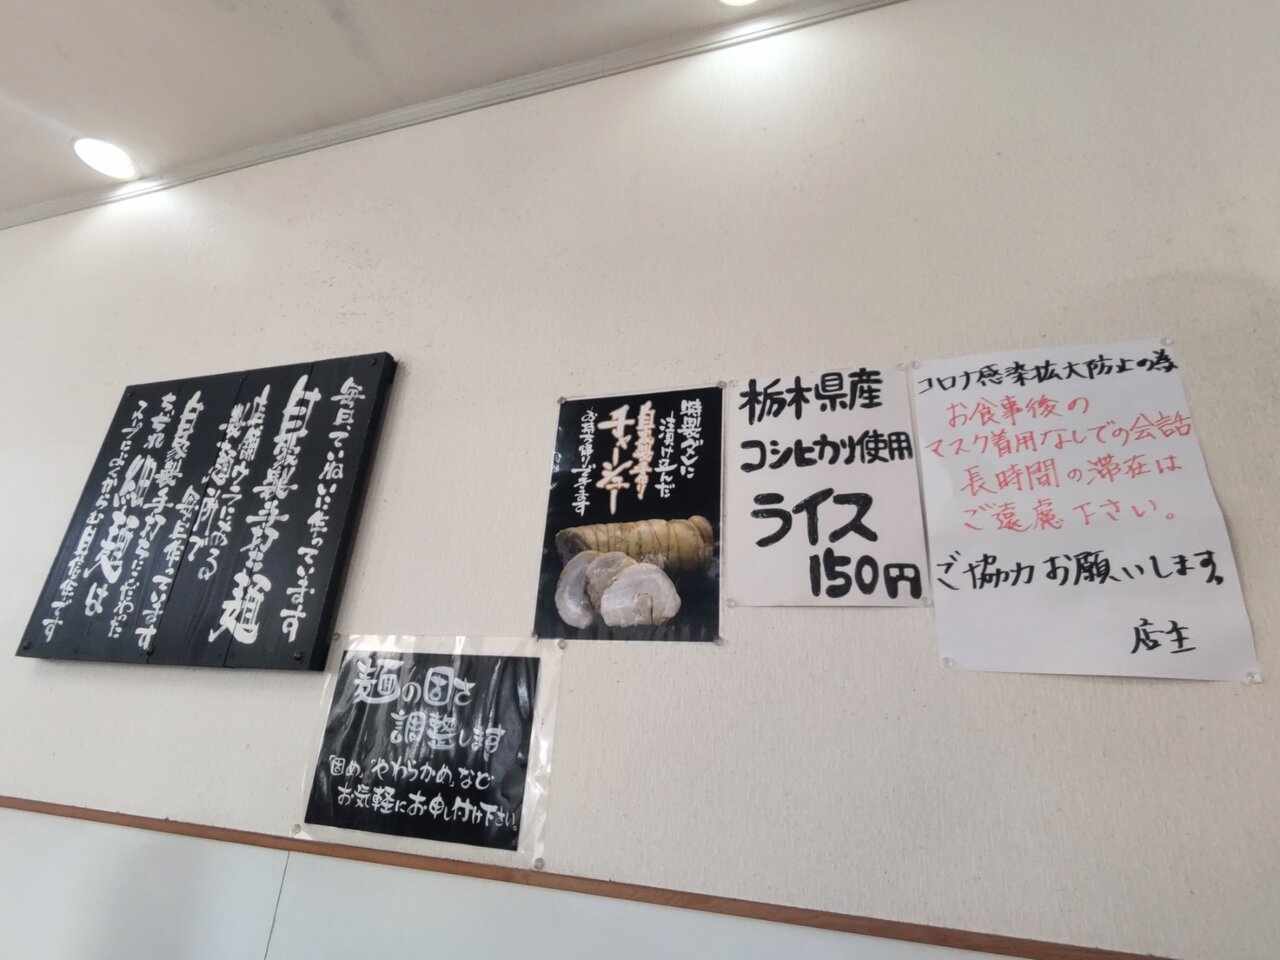 毎日ていねいに作っています
自家製手打た麺
店舗ウラにある
製麺所で
自家製 毎日作っています
手打ちにこだわった
細麺は
自信作です
麺の固さ
調整します
「固め」「やわらかめ」など
お気軽にお申し付け下さい。
特製ダレに
漬け込んだ
自家製手作り
チャーシュー
お持ち帰りできます
栃木県産
コシヒカリ使用
ライス
150円
コロナ感染拡大防止の為
お食事後の
マスク着用なしでの会話
長時間の滞在は
ご遠慮下さい。
ご協力お願いします。
店主